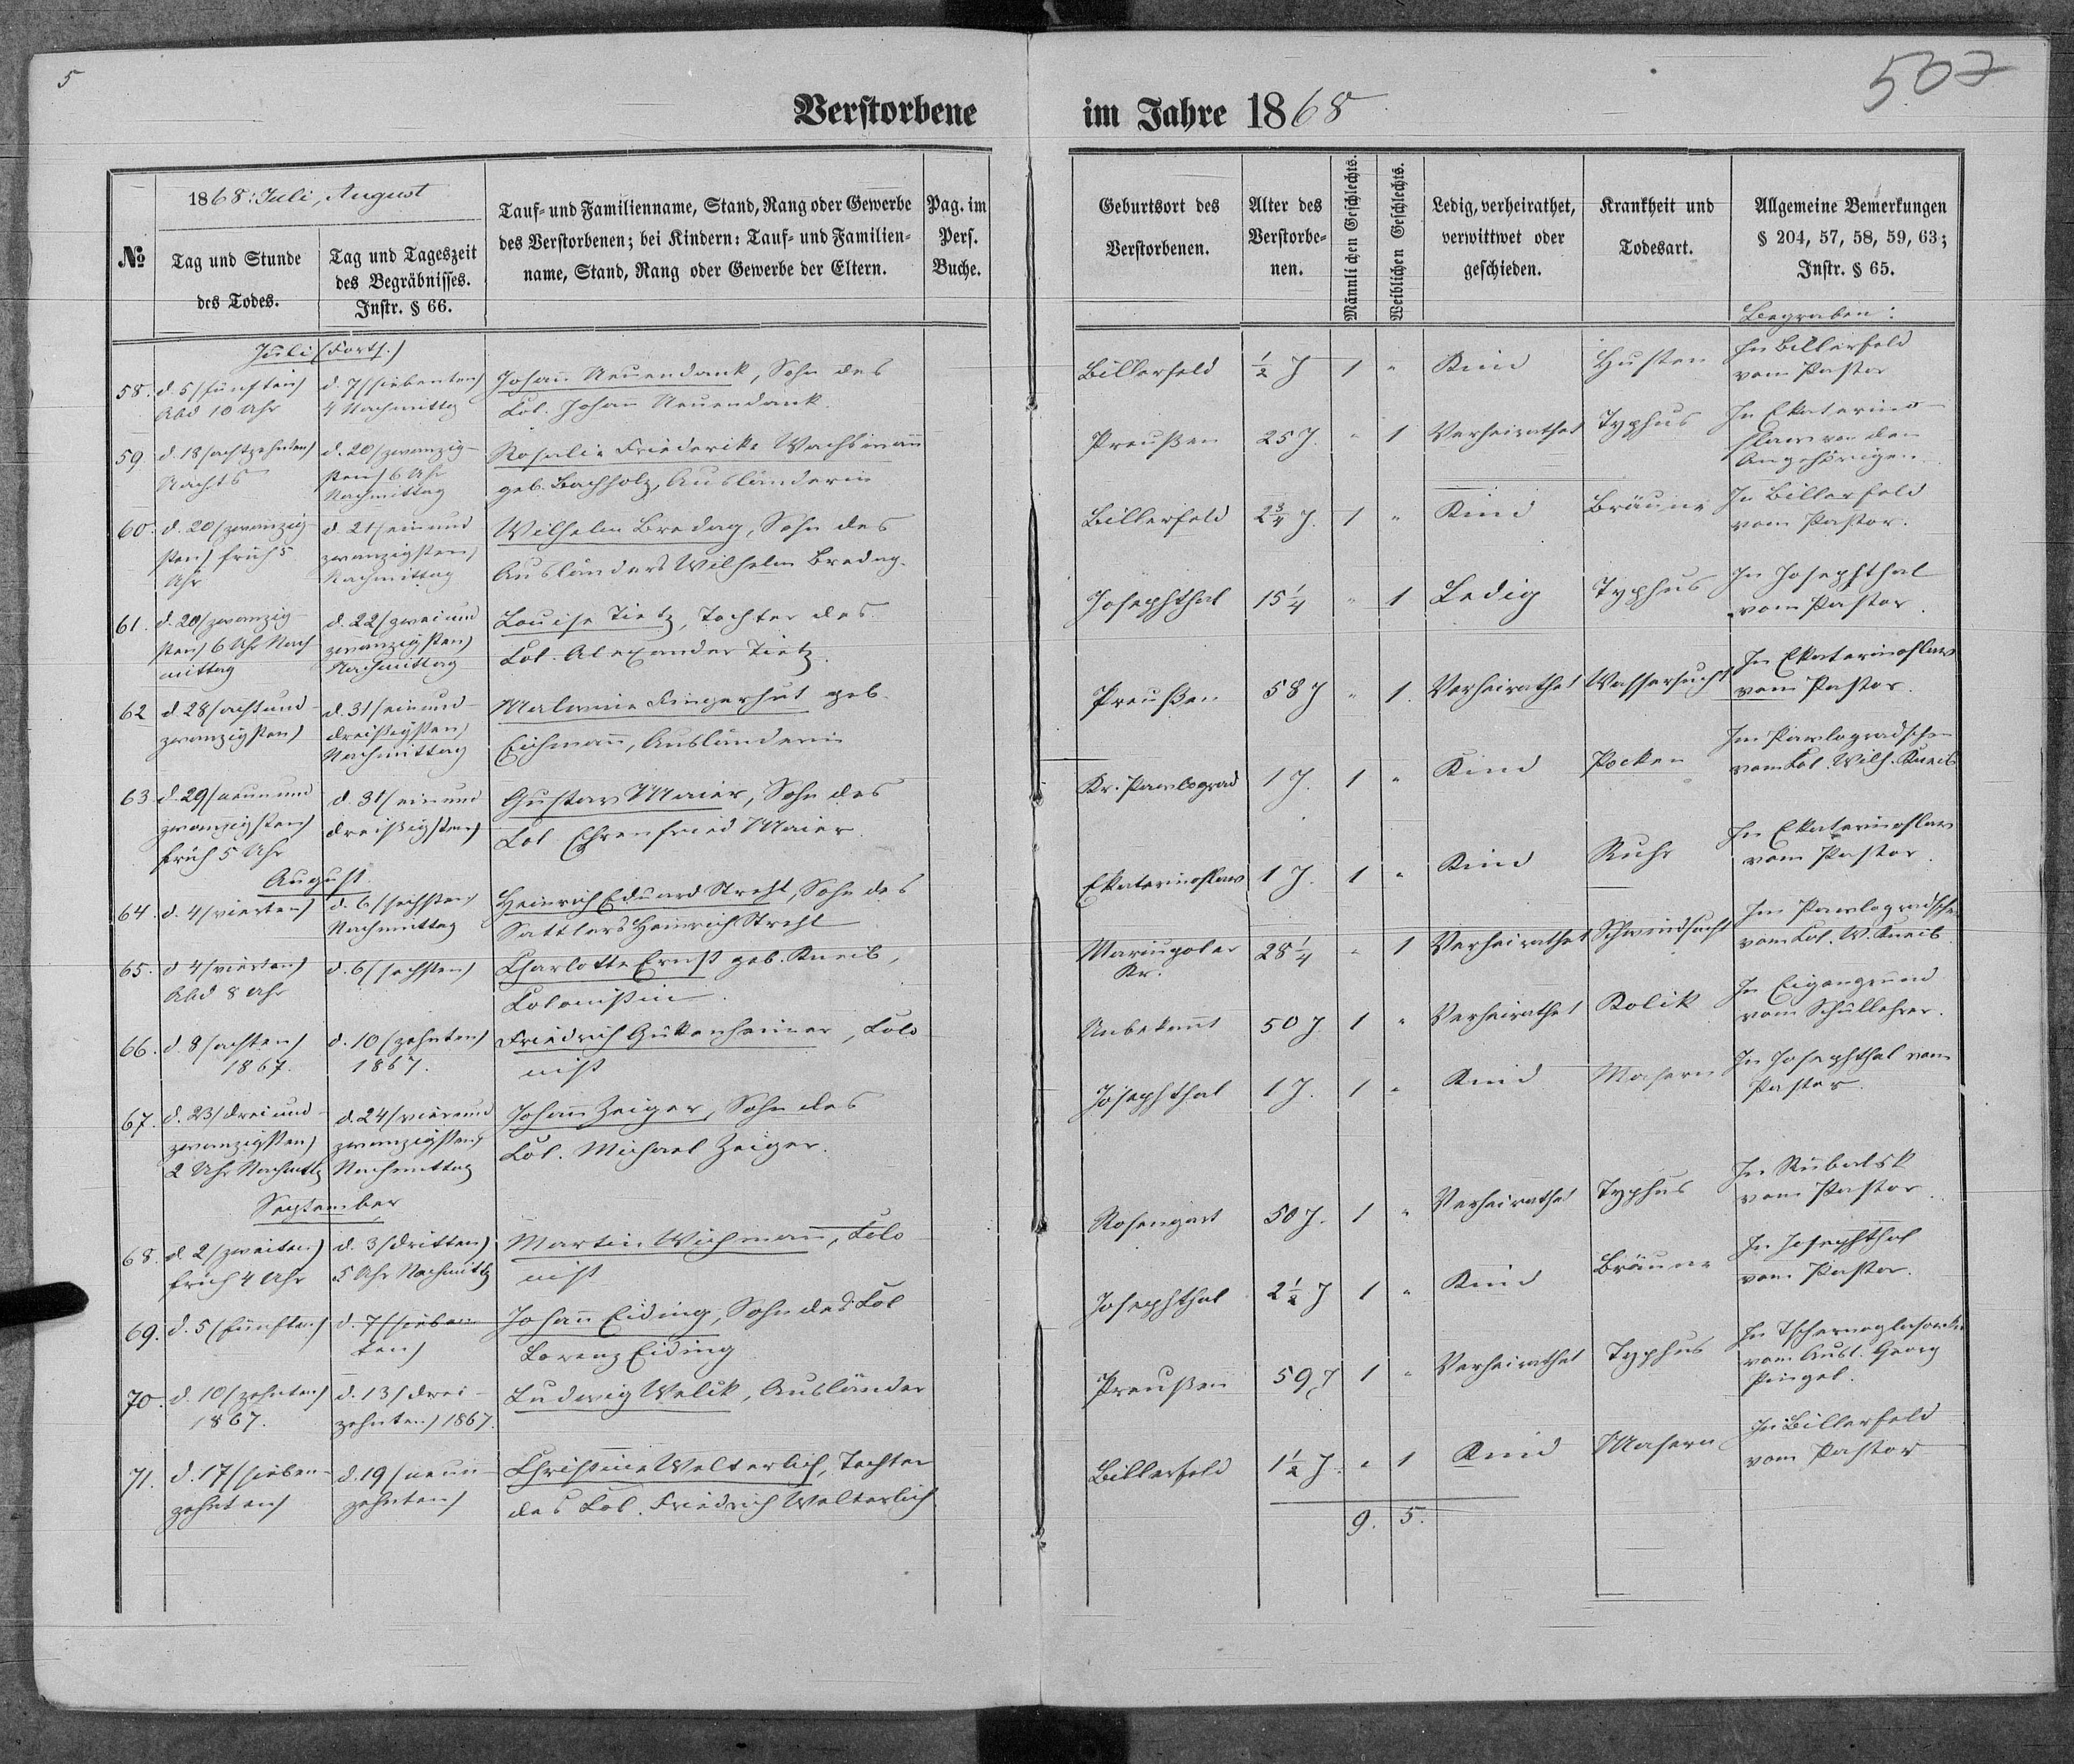 5
507
Verstorbene im Jahre 1868
№
1868: Juli, August
Tag und Stunde
des Todes.
Tag und Tageszeit
des Begräbnisses.
Instr. § 66.
Tauf- und Familienname, Stand, Rang oder Gewerbe
des Verstorbenen; bei Kindern: Tauf- und Familien-
name, Stand, Rang oder Gewerbe der Eltern.
Pag. im
Pers.
Buche.
Geburtsort des
Verstorbenen.
Alter des
Verstorbe-
nen.
Männlichen Geschlechts.
Weiblichen Geschlechts.
Ledig, verheirathet,
verwittwet oder
geschieden.
Krankheit und
Todesart.
Allgemeine Bemerkungen
§ 204, 57, 58, 59, 63;
Instr. § 65.
Begraben:
Juli (Forts.)
58. d. 5 (fünften)
Abd 10 Uhr
d. 7 (siebenten)
4 Nachmittg
Johann Neuendank, Sohn des
Col. Johann Neuendank.
Billerfeld ½ J 1 " Kind Husten
In Billerfeld
vom Pastor
59 d. 18 (achtzehnten)
Nachts
d. 20 (zwanzig-
sten) 6 Uhr
Nachmittag
Rosalie Friederike Wachsmann
geb. Bachholz, Ausländerin
Preußen 25 J. " 1 Verheirathet Typhus
In Ekaterino-
slaw von den
Angehörigen.
60. d. 20 (zwanzig-
sten) früh 5
Uhr
d. 21 (einund
zwanzigsten)
Nachmittag
Wilhelm Bredag, Sohn des
Ausländers Wilhelm Bredag.
Billerfeld 2¾ J. 1 " Kind Bräune
In Billerfeld
vom Pastor.
61. d. 20 (zwanzig-
sten) 6 Uhr Nach
mittag
d. 22 (zweiund
zwanzigsten)
Nachmittag
Louise Tietz, Tochter des
Col. Alexander Tietz.
Josephthal 15¼ " 1 Ledig Typhus
In Josephthal
vom Pastor.
62 d 28 (achtund-
zwanzigsten)
d. 31 (einund-
dreißigsten)
Nachmittag
Melanie Fingerhut geb.
Eichmann, Ausländerin
Preußen 58 J " 1. Verheirathet Wassersucht
In Ekaterinoslaw
vom Pastor.
63 d. 29 (neunund
zwanzigsten)
früh 5 Uhr
d. 31 (einund
dreißigsten)
Gustav Maier, Sohn des
Col Ehrenfried Maier.
Kr. Pawlograd 1 J. 1 " Kind Pocken
Im Pawlogradschen
vom Col. Wilh. Kneib
August.
64. d. 4 (vierten)
d. 6 (sechsten)
Nachmittag
Heinrich Eduard Strehl, Sohn des
Sattlers Heinrich Strehl
Ekaterinoslaw 1 J. 1 " Kind Ruhr
In Ekaterinoslaw
vom Pastor.
65. d 4 (vierten)
Abd 8 Uhr
d. 6 (sechsten)
Charlotte Ernst geb. Kneib,
Colonistin.
Mariupoler
Kr.
28¼ " 1 Verheirathet Schwindsucht
Im Pawlogradschen
vom Col. W. Kneib
66. d 8 (achten)
1867.
d. 10 (zehnten)
1867.
Friedrich Gükenheimer, Colo
nist
Unbekannt 50 J. 1 " Verheirathet Kolik
In Eigengrund
vom Schullehrer.
67. d. 23 (dreiund-
zwanzigsten)
2 Uhr Nachmittg
d. 24 (vierund
zwanzigsten)
Nachmittag
Johann Zeiger, Sohn des
Col. Michael Zeiger.
Josephthal 1 J. 1 " Kind Masern
In Josephthal vom
Pastor.
September
68. d. 2 (zweiten)
früh 4 Uhr
d. 3 (dritten)
5 Uhr Nachmittg
Martin Wichmann, Colo
nist
Rosengart 50 J. 1 " Verheirathet Typhus
In Rübalsk
vom Pastor.
69. d. 5 (fünften)
d. 7 (sieben
ten)
Johann Eiding, Sohn des Col
Lorenz Eiding
Josephthal 2½ J 1 " Kind Bräune
In Josephthal
vom Pastor.
70. d. 10 (zehnten)
1867.
d. 13 (drei-
zehnten) 1867.
Ludwig Welik, Ausländer
Preußen 59 J 1 " Verheirathet Typhus
vom Ausl. Georg
Pingel.
71. d. 17 (sieben-
zehnten)
d. 19 (neun-
zehnten)
Christine Welterlich, Tochter
des Col. Friedrich Welterlich
Billerfeld 1½ J. " 1 Kind Masern
In Billerfeld
vom Pastor
9. 5.